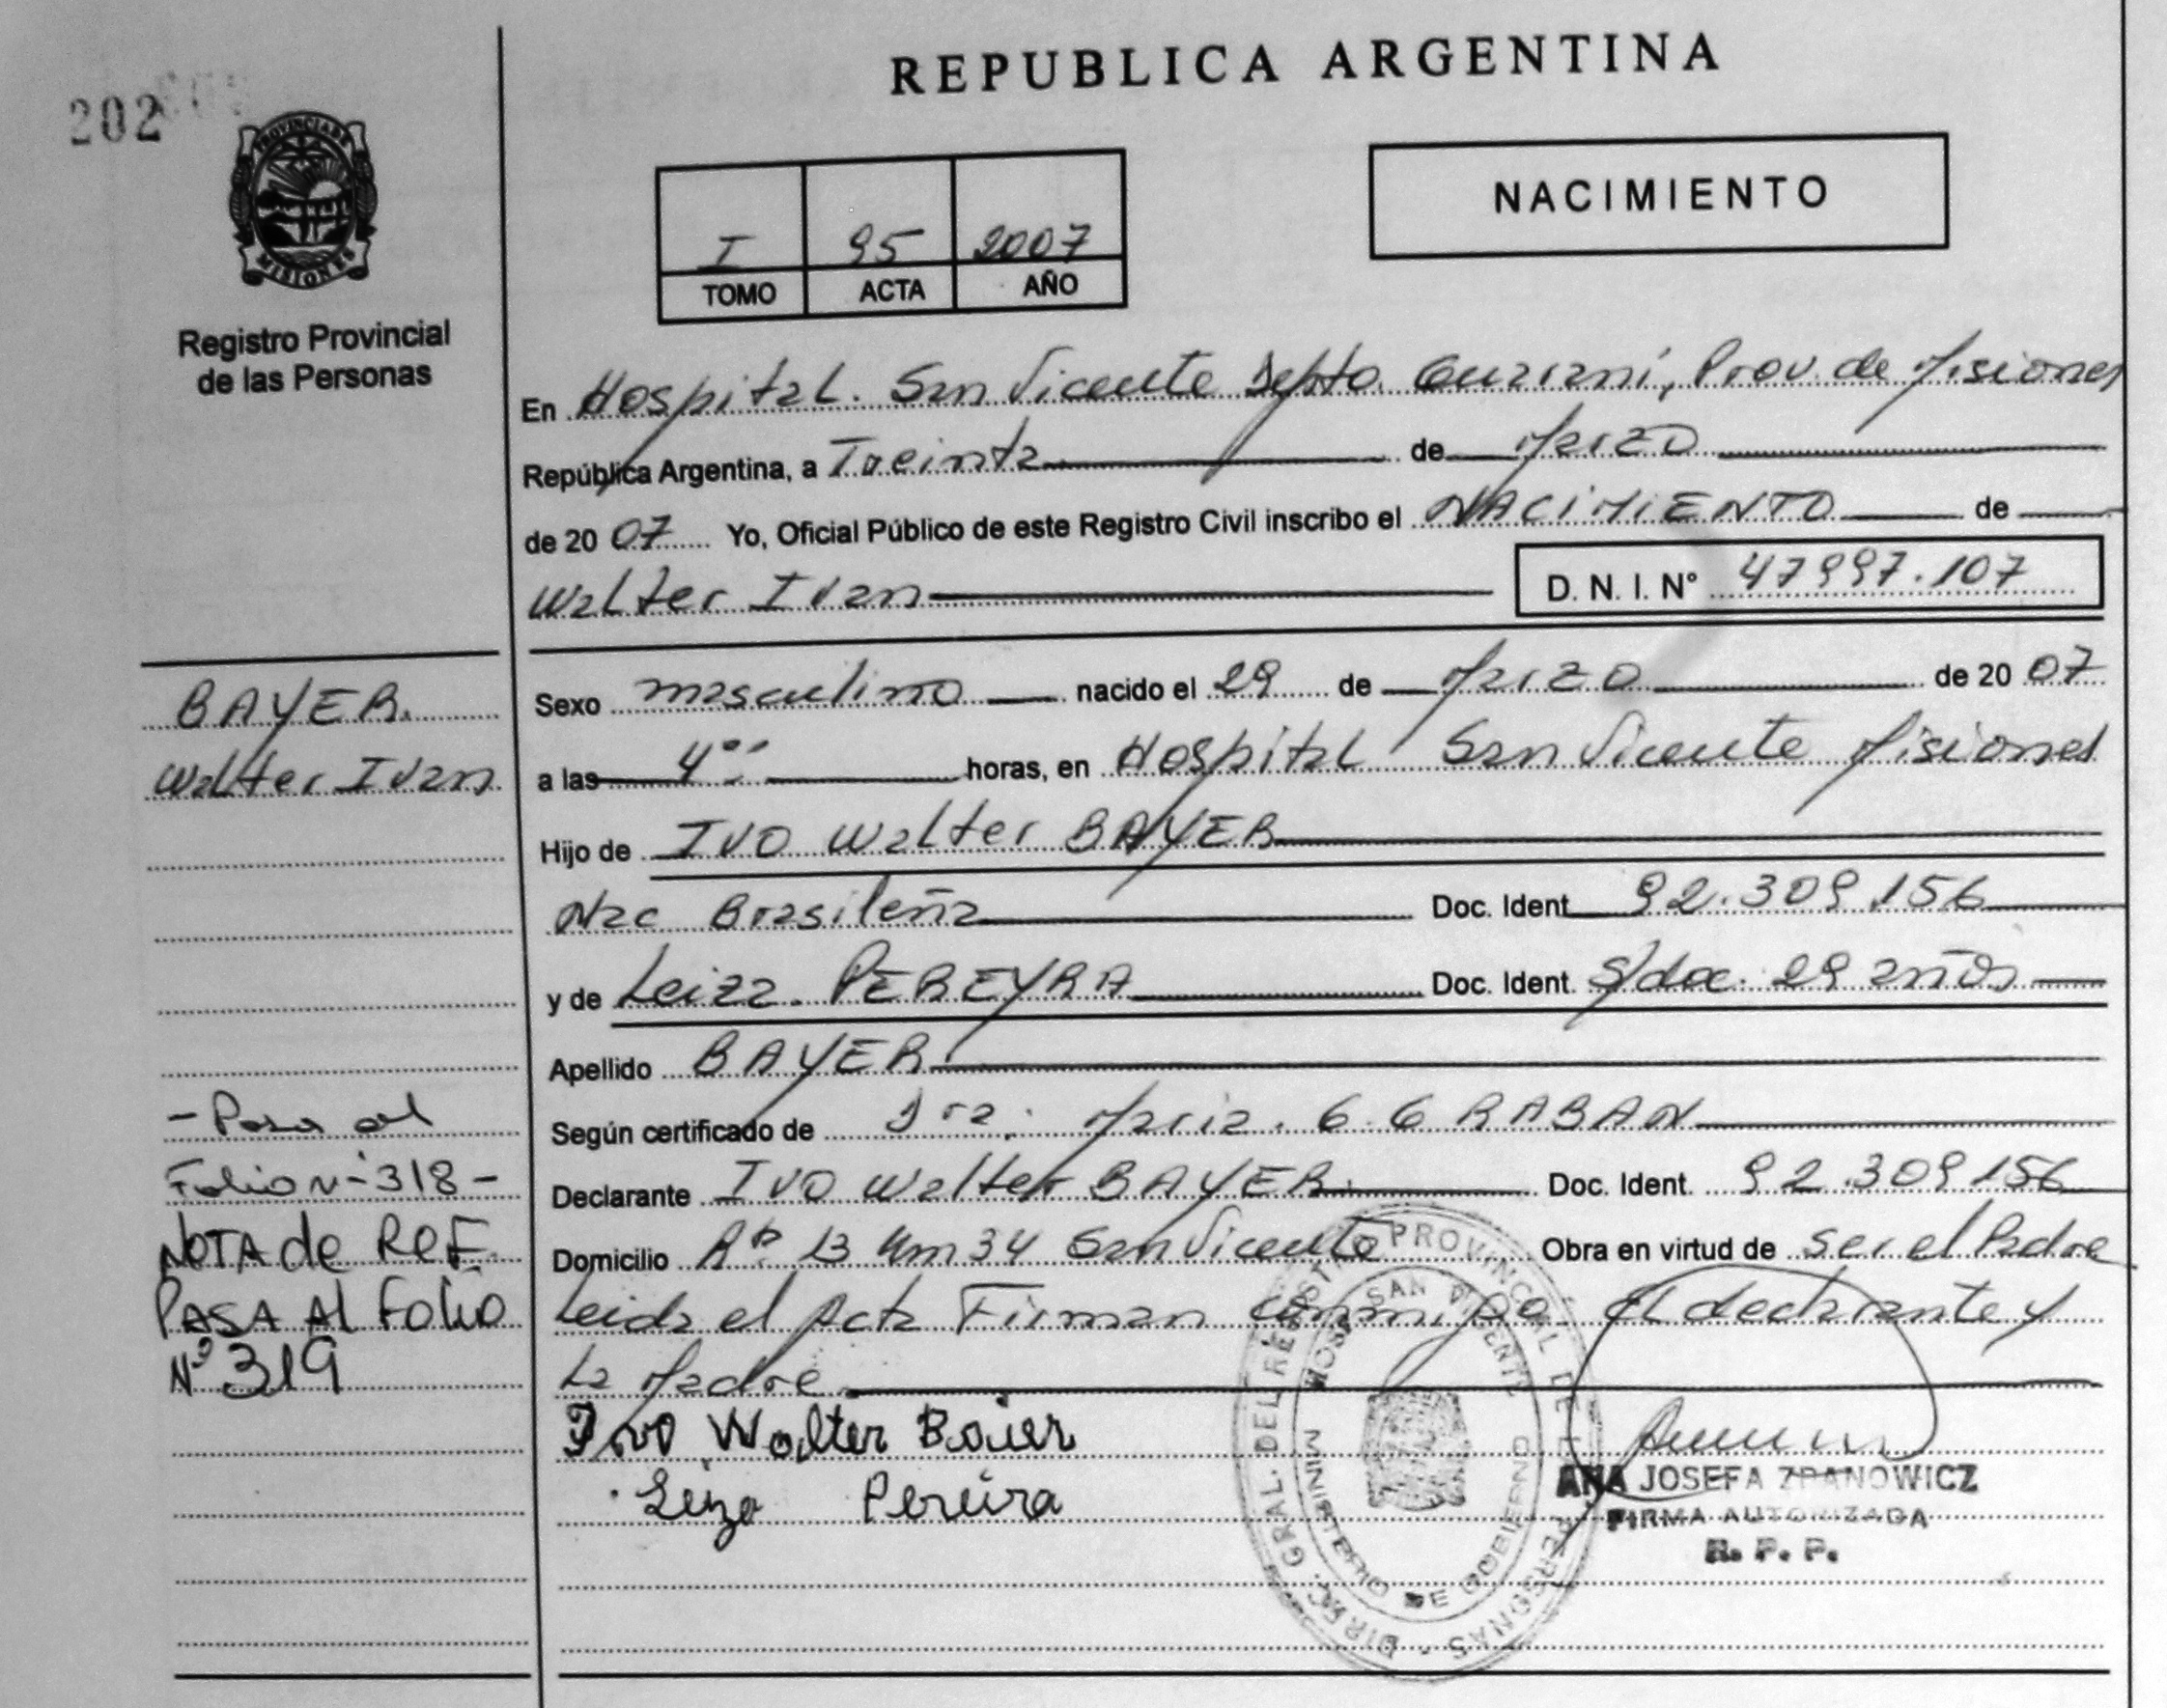 REPUBLICA ARGENTINA
202
PROVINCIA DE
MISIONES
Registro Provincial
de las Personas
I 95 2007
TOMO ACTA AÑO
NACIMIENTO
En Hospital. San Vicente Depto. Guaraní, Prov. de Misiones
República Argentina, a Treinta de Marzo
de 20 07 Yo, Oficial Público de este Registro Civil inscribo el NACIMIENTO de
Walter Ivan D. N. I. N° 47997.107
BAYER.
Walter Ivan
Sexo masculino nacido el 29 de Marzo de 20 07
a las 4 horas, en Hospital San Vicente Misiones
Hijo de IVO Walter BAYER
Nac Brasileña Doc. Ident 92.309.156
y de PEREYRA Doc. Ident. S/doc. 29 años
Apellido BAYER
Según certificado de Dra. Maria. G. G RABAN
Declarante IVO Walter BAYER. Doc. Ident. 92.309156
Domicilio 13 Km 34 San Vicente Obra en virtud de ser el Padre
Leida el Acta Firman El declarante y
La Madre
- Pasa al
Folio N- 318 -
NOTA de REF.
PASA Al Folio
N° 319
Ivo Walter Baier
Pereira
ANA JOSEFA ZPANOWICZ
FIRMA AUTORIZADA
R. P. P.
DIREC. GRAL. DEL REGISTRO PROVINCIAL DE LAS PERSONAS
HOSP. SAN VICENTE
MINISTERIO DE GOBIERNO